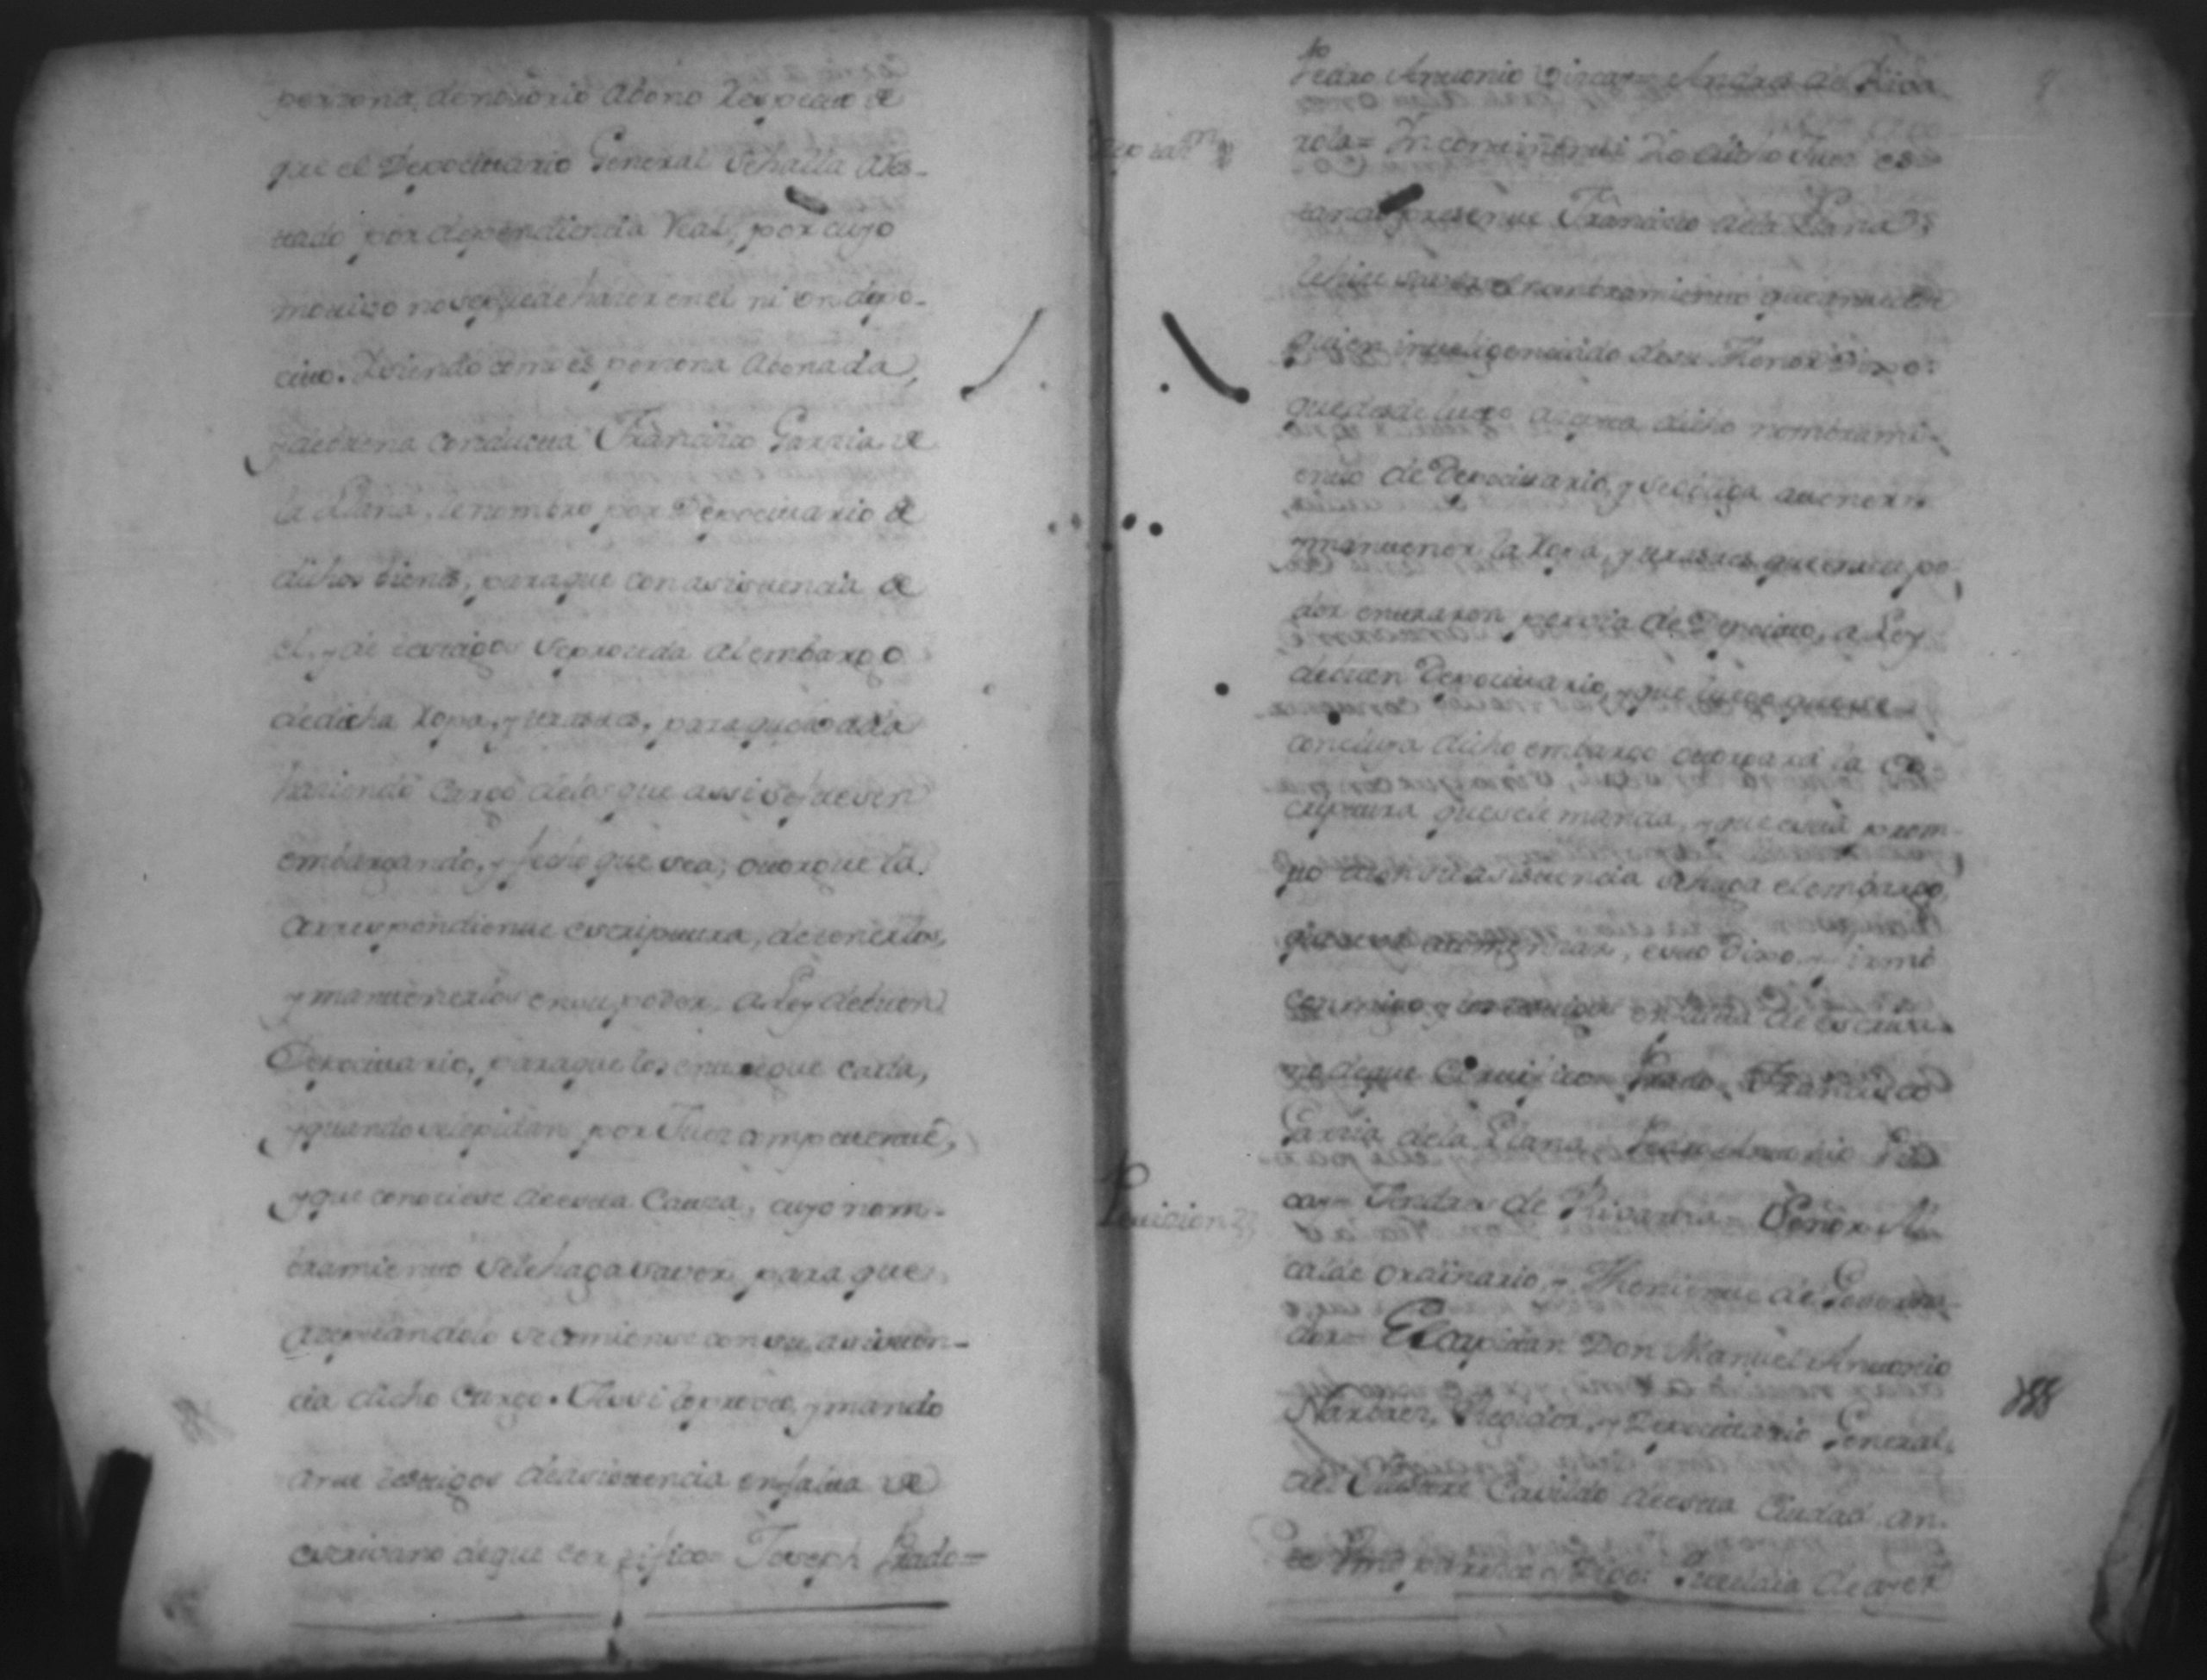 persona, denotorio Abono Respecto de
que el Depocitario General sehalla Ares-
tado por dependiencia Real, por cuyo
motibo nosepuede hazer en el ni en depo-
cito. Ysiendo como es persona Abonada,
ydebuena conducta Francisco Garzia de
la Llana, lenombro por Depocitario de
dichos bienes, paraque con asistencia de
el, y de testigos seproceda al embargo
dedicha Ropa, y trastes, para que
haziendo cargo delos que assi sefueren
embargando, y fecho que sea, otorgue la
correspondiente escriptura, detenerlos,
y mantenerlos ensu poder, a Ley debuen
Depocitario, paraque los entregue cada,
yquando selepidan por Juez competente,
yque conociese deesta Causa, cuyo nom-
bramiento selehaga saver, para que
aceptandolo secomiense con su asisten-
cia dicho cargo. Yassi lo proveo, y mando
ante testigos deasistencia enfalta de
escrivano deque certifico= Joseph Prado=
Pedro Antonio Andres de Riva
rola= Incontinenti Yo dicho Juez es-
tando presente Francisco dela Llana,
lehise saver el nombramiento que antecede
quien inteligenciado desu Thenor Dixo:
quedesde luego acepta dicho nombrami-
ento de Depocitario, y seobliga atener,
ymantener la Ropa, y trastes que ensu po-
der entraren por via de Depocito, a Ley
debuen Depocitario, yque luego quese
concluya dicho embargo otorgará la Es-
criptura quesele manda, yque está prom-
pto aconsu asistencia sehaga el embargo,
esto Dixo, y firmó
conmigo y los testigos enfalta de escriva-
no deque Certifico= Prado= Francisco
Garzia dela Llana= Pedro Antonio
Andres de Rivarola= Señor Al-
calde ordinario, y Theniente de Governa-
dor= El Capitan Don Manuel Antonio
Narbaez, Regidor, y Depocitario General
del Illustre Cavildo deesta Ciudad, an-
te Vmd paresco y Digo:
Peticion
188